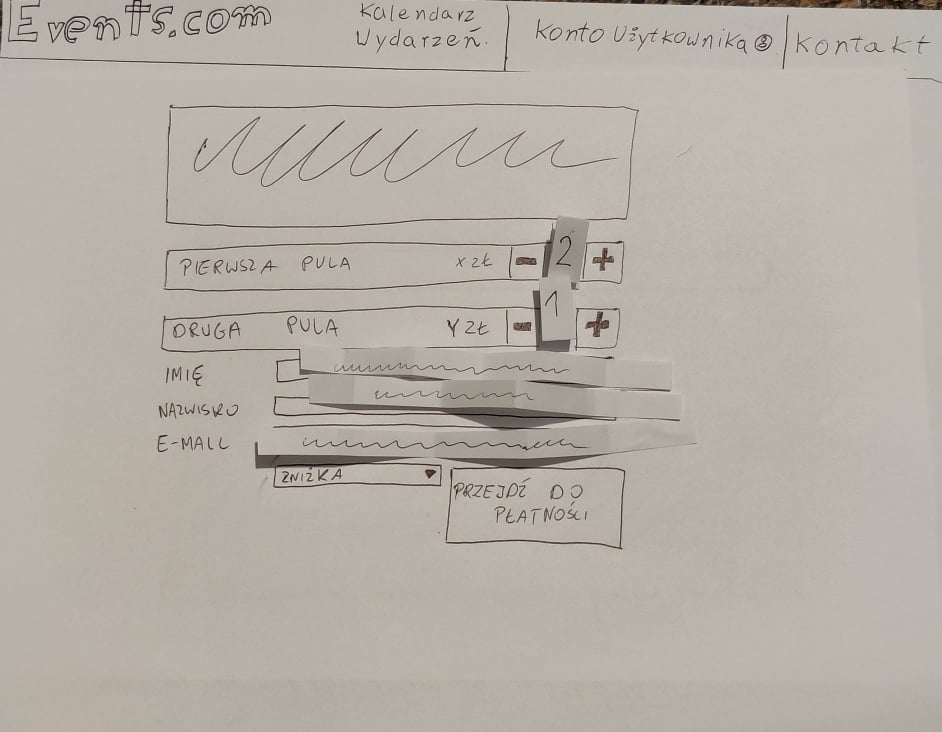 Events.com
Kalendarz
Wydarzeń.
Konto Użytkownika
Kontakt
PIERWSZA PULA X ZŁ - 2 +
DRUGA PULA Y ZŁ - 1 +
IMIĘ
NAZWISKO
E-MAIL
ZNIŻKA
PRZEJDŹ DO
PŁATNOŚCI